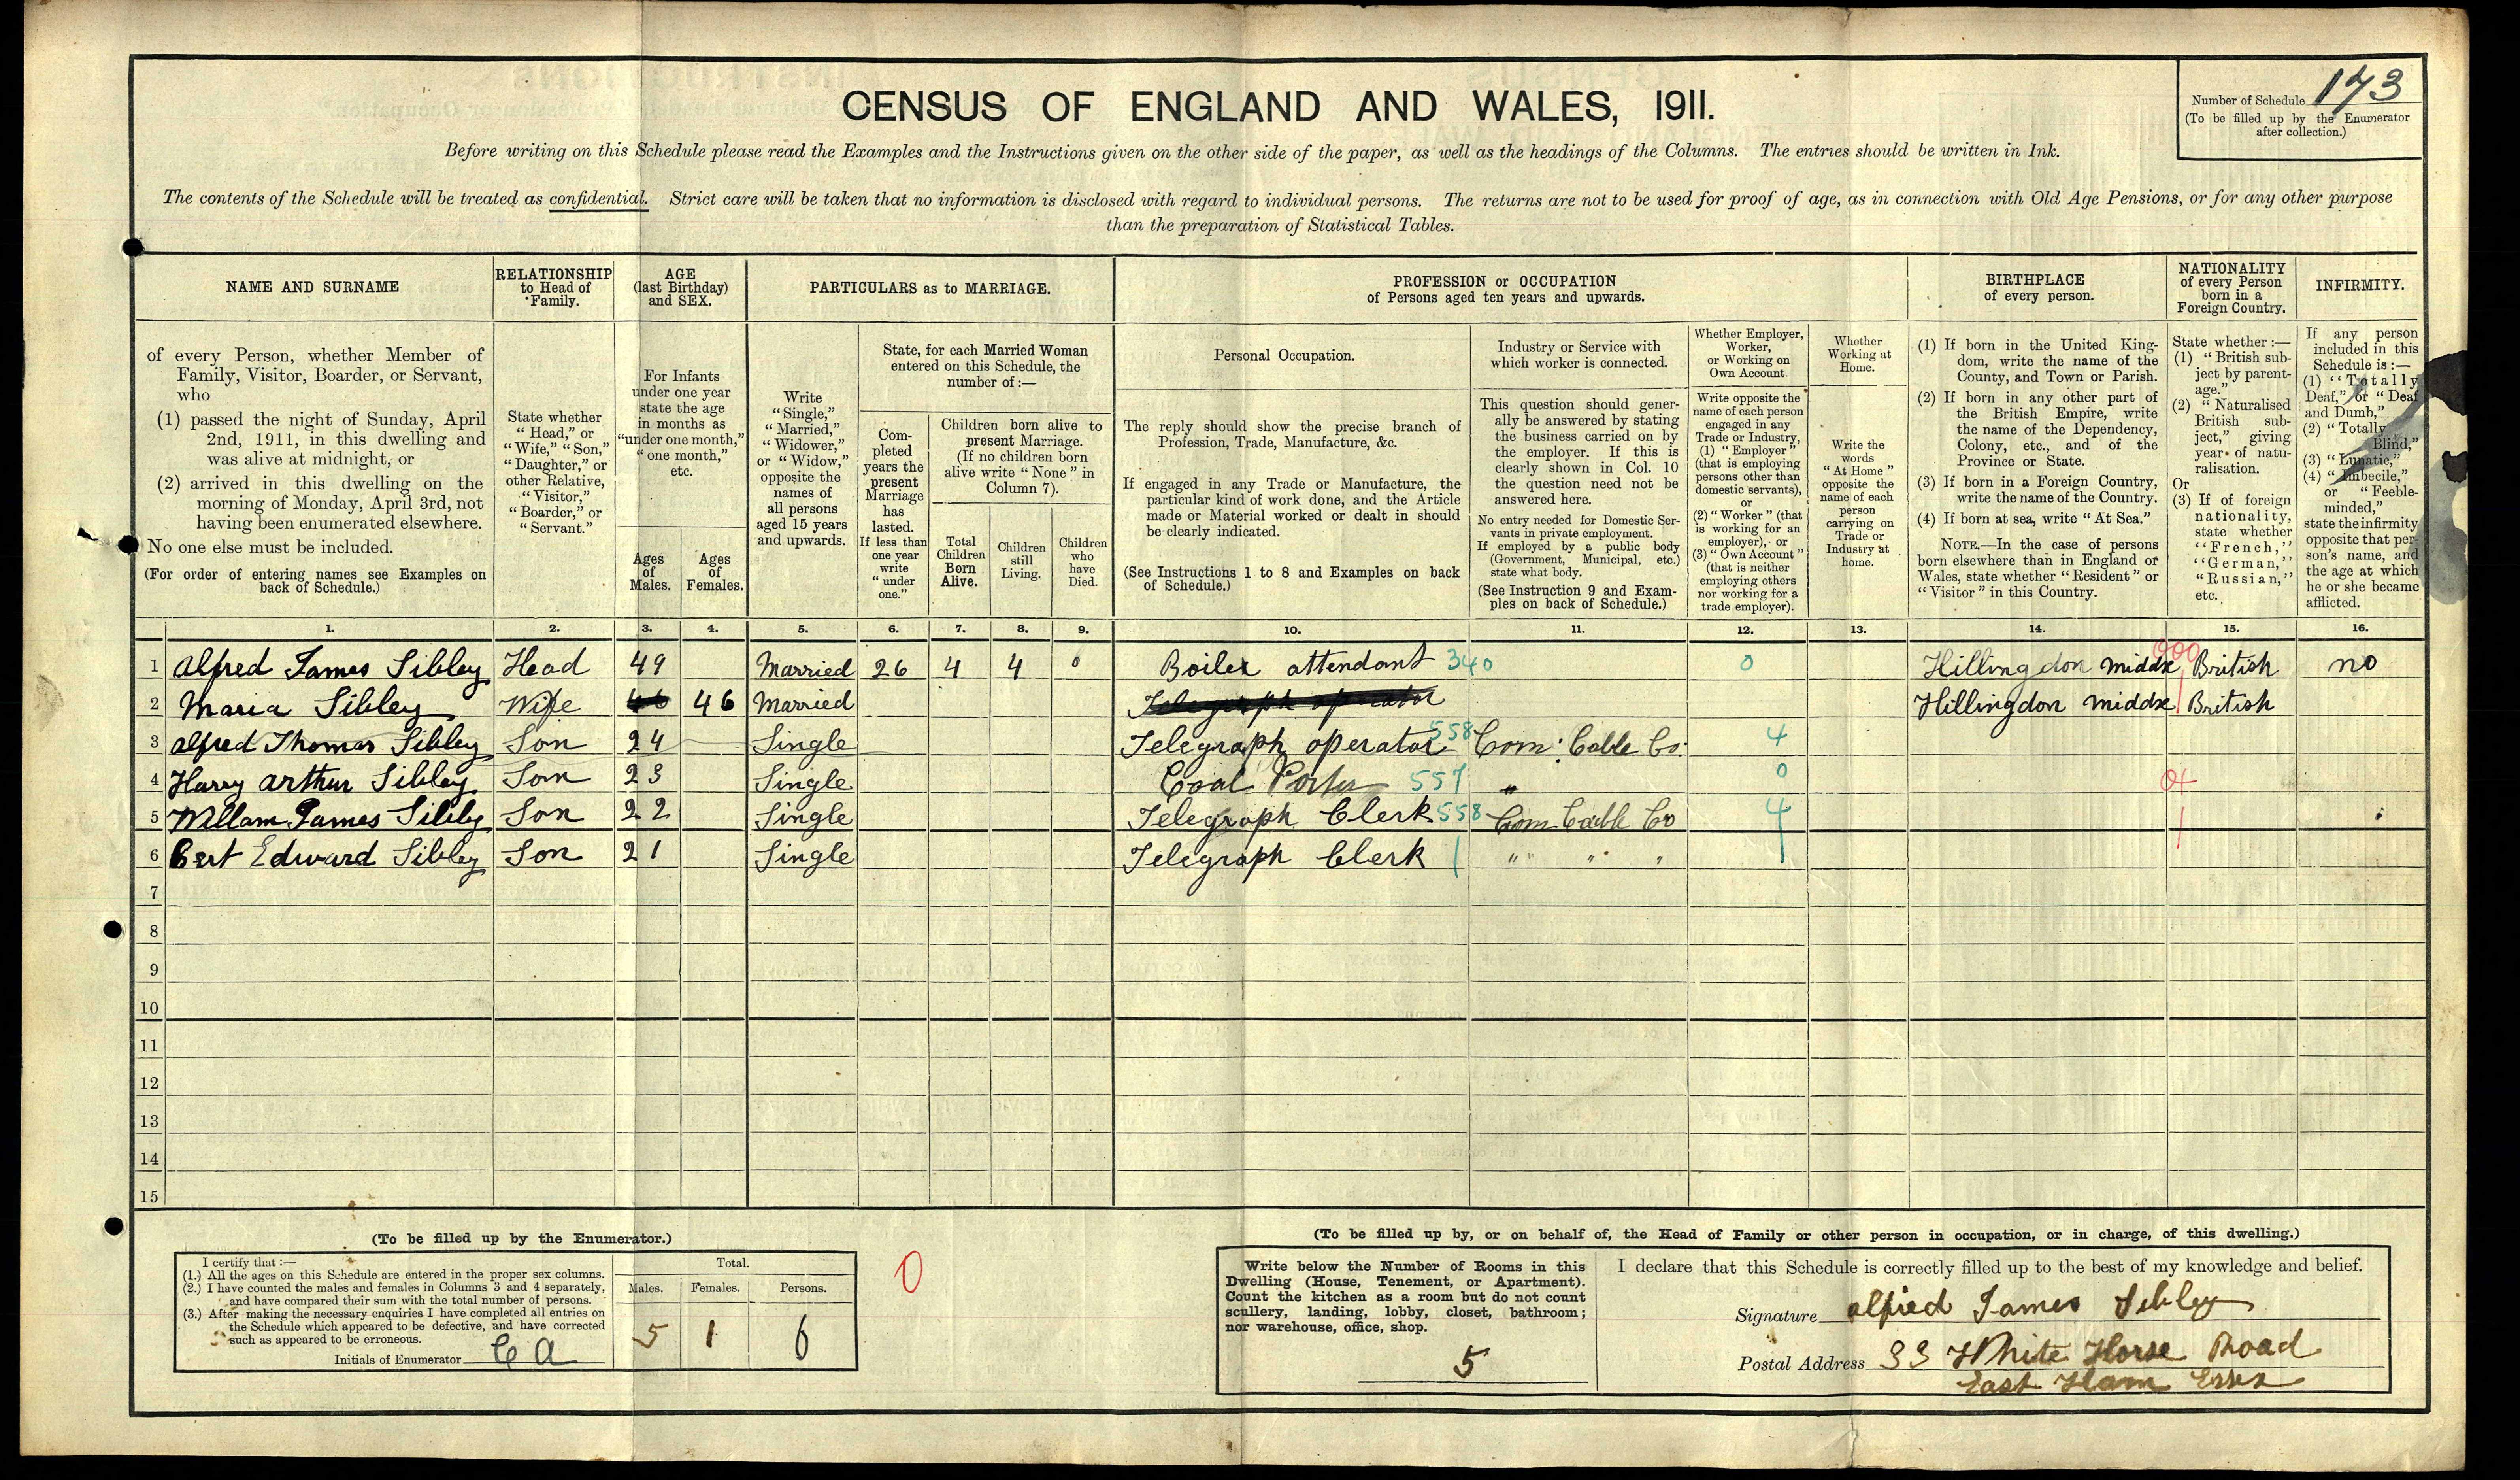 CENSUS OF ENGLAND AND WALES, 1911.
Number of Schedule 173
(To be filled up by the Enumerator
after collection.)
Before writing on this Schedule please read the Examples and the Instructions given on the other side of the paper, as well as the headings of the Columns. The entries should be written in Ink.
The contents of the Schedule will be treated as confidential. Strict care will be taken that no information is disclosed with regard to individual persons. The returns are not to be used for proof of age, as in connection with Old Age Pensions, or for any other purpose
than the preparation of Statistical Tables.
NAME AND SURNAME
of every Person, whether Member of
Family, Visitor, Boarder, or Servant,
who
(1) passed the night of Sunday, April
2nd, 1911, in this dwelling and
was alive at midnight, or
(2) arrived in this dwelling on the
morning of Monday, April 3rd, not
having been enumerated elsewhere.
No one else must be included.
(For order of entering names see Examples on
back of Schedule.)
RELATIONSHIP
to Head of
Family.
State whether
"Head," or
"Wife," "Son,"
"Daughter," or
other Relative,
"Visitor,"
"Boarder," or
"Servant."
AGE
(last Birthday)
and SEX.
For Infants
under one year
state the age
in months as
"under one month,"
"one month,"
etc.
Ages
of
Males.
Ages
of
Females.
PARTICULARS as to MARRIAGE.
Write
"Single,"
"Married,"
"Widower,"
or "Widow,"
opposite the
names of
all persons
aged 15 years
and upwards.
State, for each Married Woman
entered on this Schedule, the
number of :—
Com-
pleted
years the
present
Marriage
has
lasted.
If less than
one year
write
"under
one."
Children born alive to
present Marriage.
(If no children born
alive write "None" in
Column 7).
Total
Children
Born
Alive.
Children
still
Living.
Children
who
have
Died.
PROFESSION or OCCUPATION
of Persons aged ten years and upwards.
Personal Occupation.
The reply should show the precise branch of
Profession, Trade, Manufacture, &c.
If engaged in any Trade or Manufacture, the
particular kind of work done, and the Article
made or Material worked or dealt in should
be clearly indicated.
(See Instructions 1 to 8 and Examples on back
of Schedule.)
Industry or Service with
which worker is connected.
This question should gener-
ally be answered by stating
the business carried on by
the employer. If this is
clearly shown in Col. 10
the question need not be
answered here.
No entry needed for Domestic Ser-
vants in private employment.
If employed by a public body
(Government, Municipal, etc.)
state what body.
(See Instruction 9 and Exam-
ples on back of Schedule.)
Whether Employer,
Worker,
or Working on
Own Account.
Write opposite the
name of each person
engaged in any
Trade or Industry,
(1) "Employer"
(that is employing
persons other than
domestic servants),
or
(2) "Worker" (that
is working for an
employer), or
(3) "Own Account"
(that is neither
employing others
nor working for a
trade employer).
Whether
Working at
Home.
Write the
words
"At Home"
opposite the
name of each
person
carrying on
Trade or
Industry at
home.
BIRTHPLACE
of every person.
(1) If born in the United King-
dom, write the name of the
County, and Town or Parish.
(2) If born in any other part of
the British Empire, write
the name of the Dependency,
Colony, etc., and of the
Province or State.
(3) If born in a Foreign Country,
write the name of the Country.
(4) If born at sea, write "At Sea."
NOTE.—In the case of persons
born elsewhere than in England or
Wales, state whether "Resident" or
"Visitor" in this Country.
NATIONALITY
of every Person
born in a
Foreign Country.
State whether :—
(1) "British sub-
ject by parent-
age."
(2) "Naturalised
British sub-
ject," giving
year of natu-
ralisation.
Or
(3) If of foreign
nationality,
state whether
"French,"
"German,"
"Russian,"
etc.
INFIRMITY.
If any person
included in this
Schedule is :—
(1) "Totally
Deaf," or "Deaf
and Dumb,"
(2) "Totally
Blind,"
(3) "Lunatic,"
(4) "Imbecile,"
or "Feeble-
minded,"
state the infirmity
opposite that per-
son's name, and
the age at which
he or she became
afflicted.
1. 2. 3. 4. 5. 6. 7. 8. 9. 10. 11. 12. 13. 14. 15. 16.
1 Alfred James Sibley Head 49 Married 26 4 4 0 Boiler attendant 340 0 Hillingdon Middx 000 British no
2 Maria Sibley Wife 46 46 Married Telegraph operator Hillingdon Middx British
3 Alfred Thomas Sibley Son 24 Single Telegraph operator 558 Com. Cable Co. 4
4 Harry Arthur Sibley Son 23 Single Coal Porter 557 " 0
5 Willam James Sibley Son 22 Single Telegraph Clerk 558 Com Cable Co 4
6 Bert Edward Sibley Son 21 Single Telegraph Clerk " " "
7
8
9
10
11
12
13
14
15
(To be filled up by the Enumerator.)
I certify that :—
(1.) All the ages on this Schedule are entered in the proper sex columns.
(2.) I have counted the males and females in Columns 3 and 4 separately,
and have compared their sum with the total number of persons.
(3.) After making the necessary enquiries I have completed all entries on
the Schedule which appeared to be defective, and have corrected
such as appeared to be erroneous.
Initials of Enumerator C A
Total.
Males. Females. Persons.
5 1 6
0
(To be filled up by, or on behalf of, the Head of Family or other person in occupation, or in charge, of this dwelling.)
Write below the Number of Rooms in this
Dwelling (House, Tenement, or Apartment).
Count the kitchen as a room but do not count
scullery, landing, lobby, closet, bathroom;
nor warehouse, office, shop.
5
I declare that this Schedule is correctly filled up to the best of my knowledge and belief.
Signature Alfred James Sibley
Postal Address 33 White Horse Road
East Ham Essex